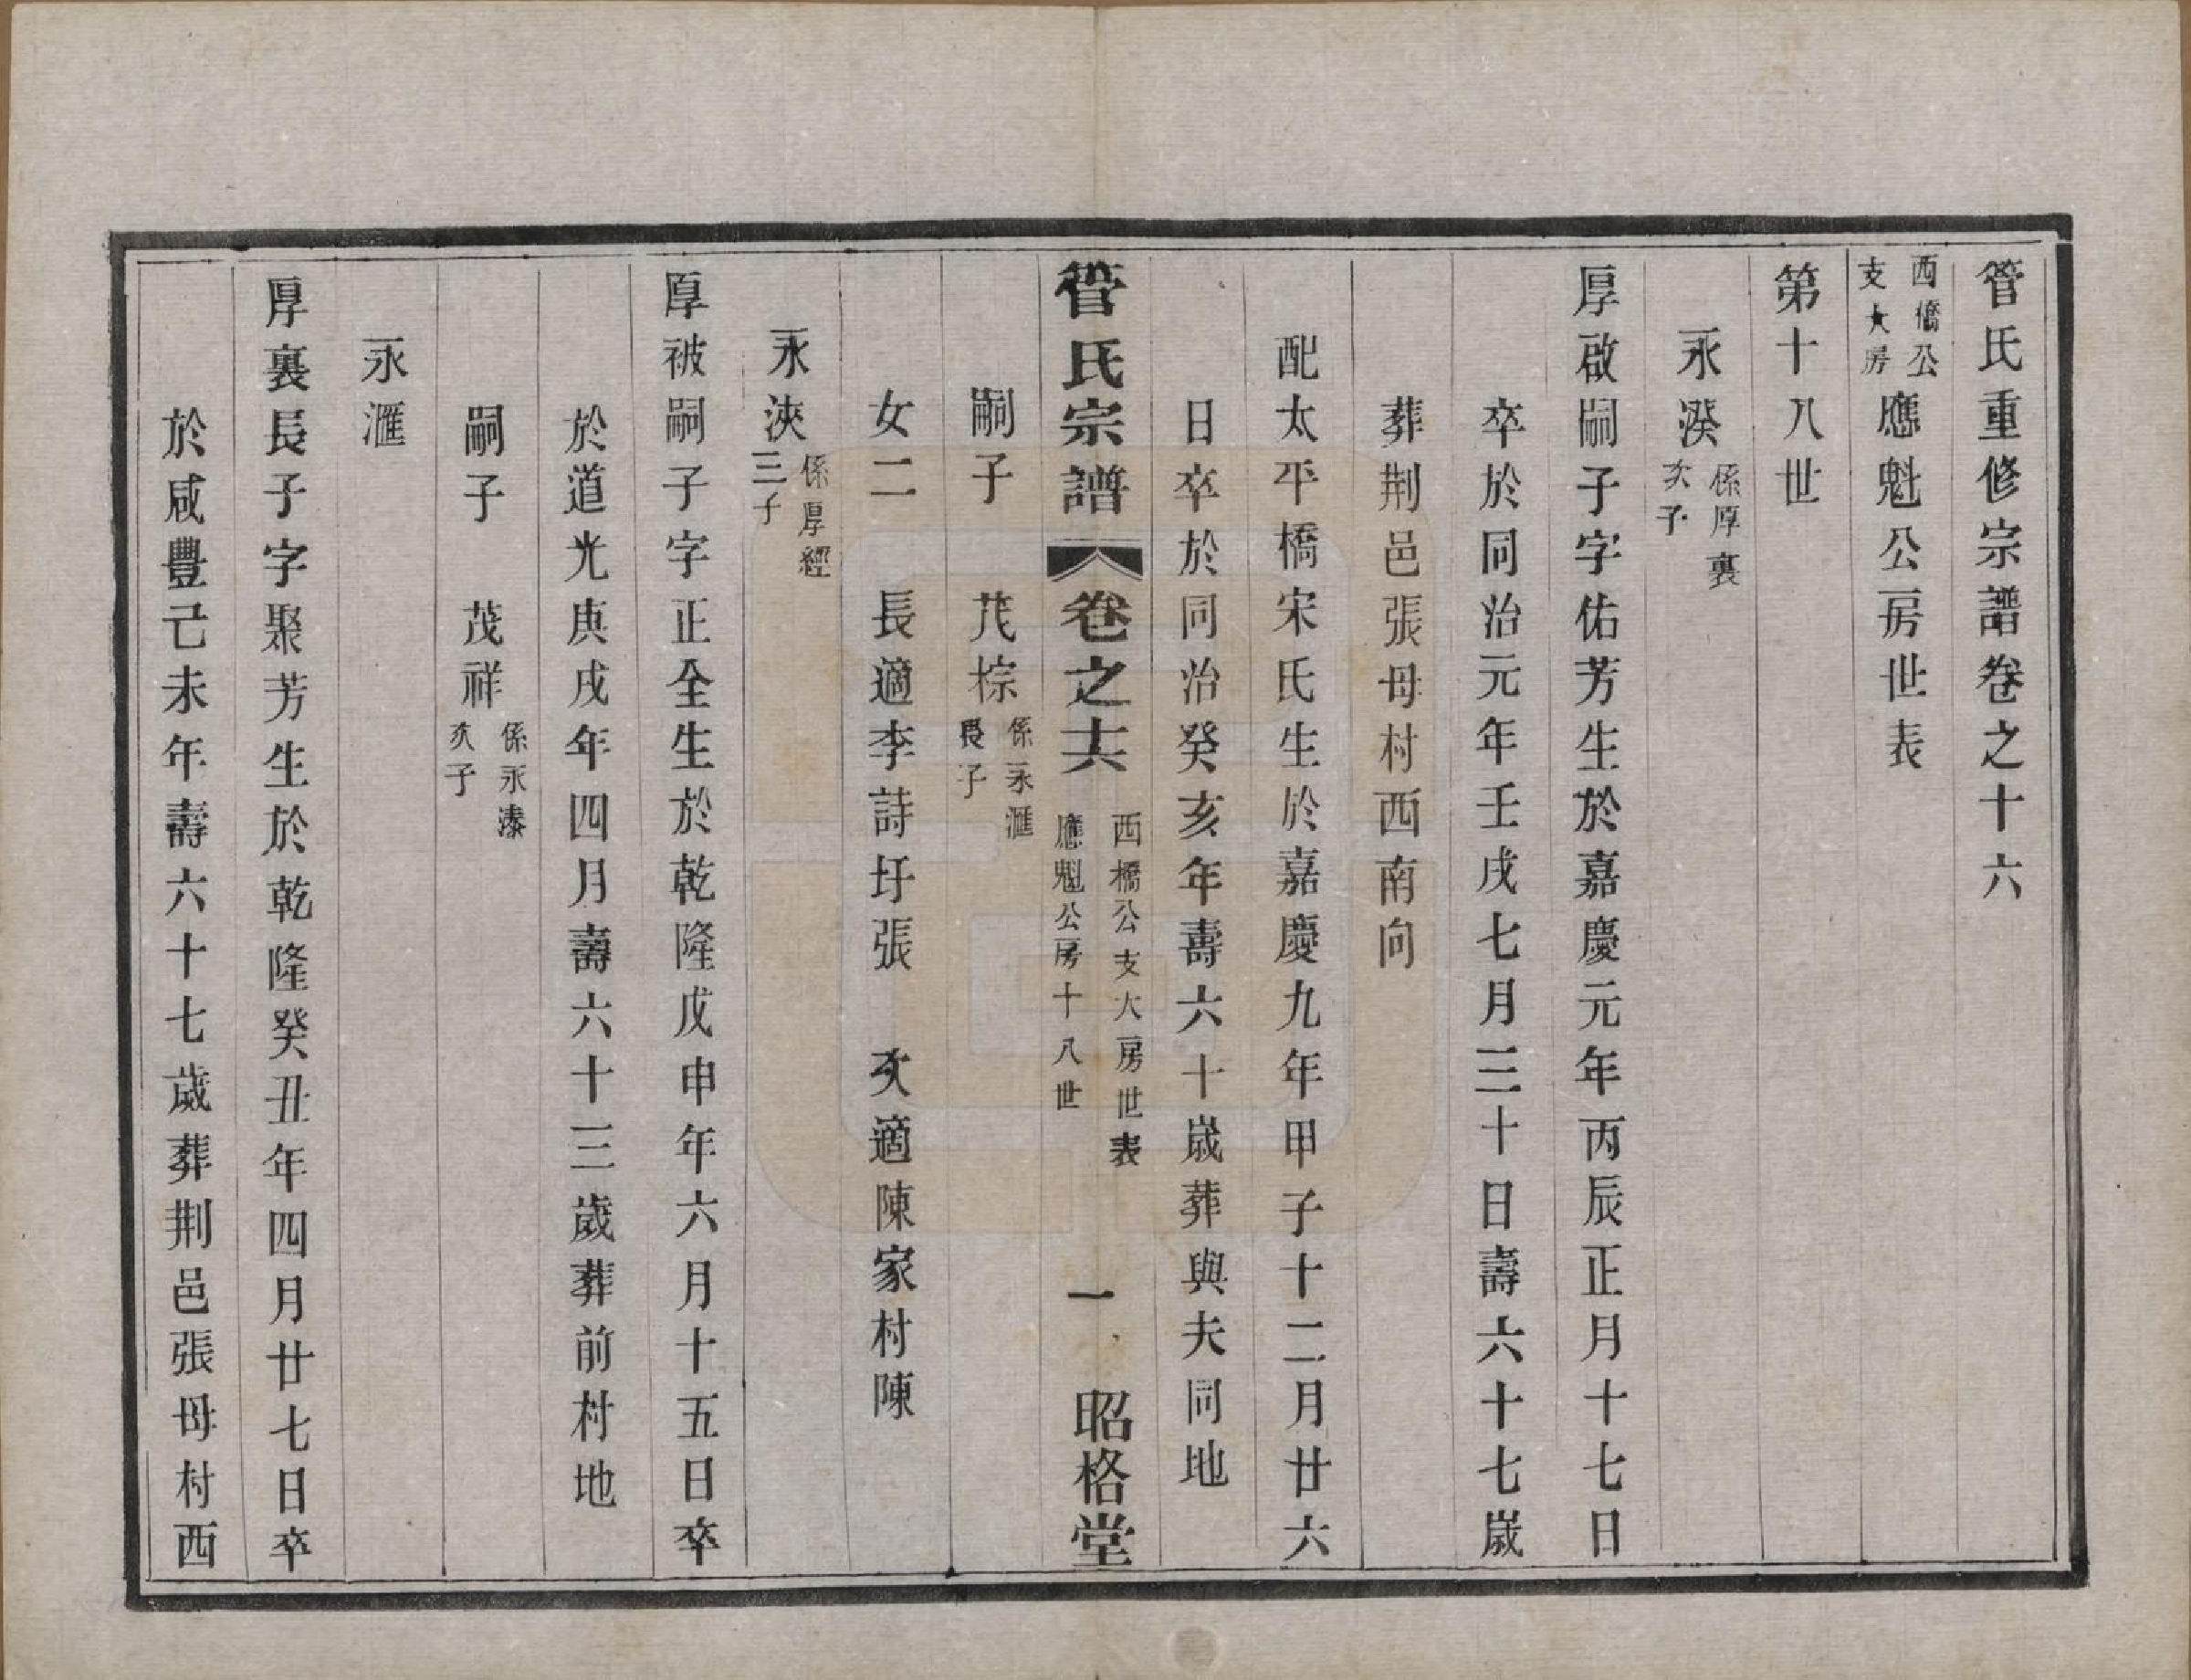 管氏重修宗譜卷之十六
西橋公支大房應魁公房世表
第十八世
永湀係厚裏次子
厚啟嗣子字佑芳生於嘉慶元年丙辰正月十七日
卒於同治元年壬戌七月三十日壽六十七歲
葬荆邑張母村西南向
配太平橋宋氏生於嘉慶九年甲子十二月廿六
日卒於同治癸亥年壽六十歲葬與夫同地
管氏宗譜 卷之十六 西橋公支大房世表應魁公房十八世 一 昭格堂
嗣子 茂棕係永滙長子
女二 長適李詩圩張 次適陳家村陳
永浹係厚經三子
厚被嗣子字正全生於乾隆戊申年六月十五日卒
於道光庚戌年四月壽六十三歲葬前村地
嗣子 茂祥係永溙次子
永滙
厚裏長子字聚芳生於乾隆癸丑年四月廿七日卒
於咸豐己未年壽六十七歲葬荆邑張母村西